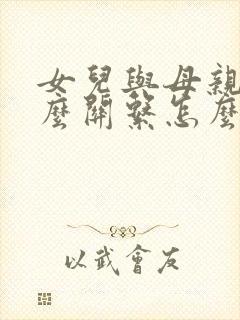 女兒與母親
麼關繫怎麼
以武會友